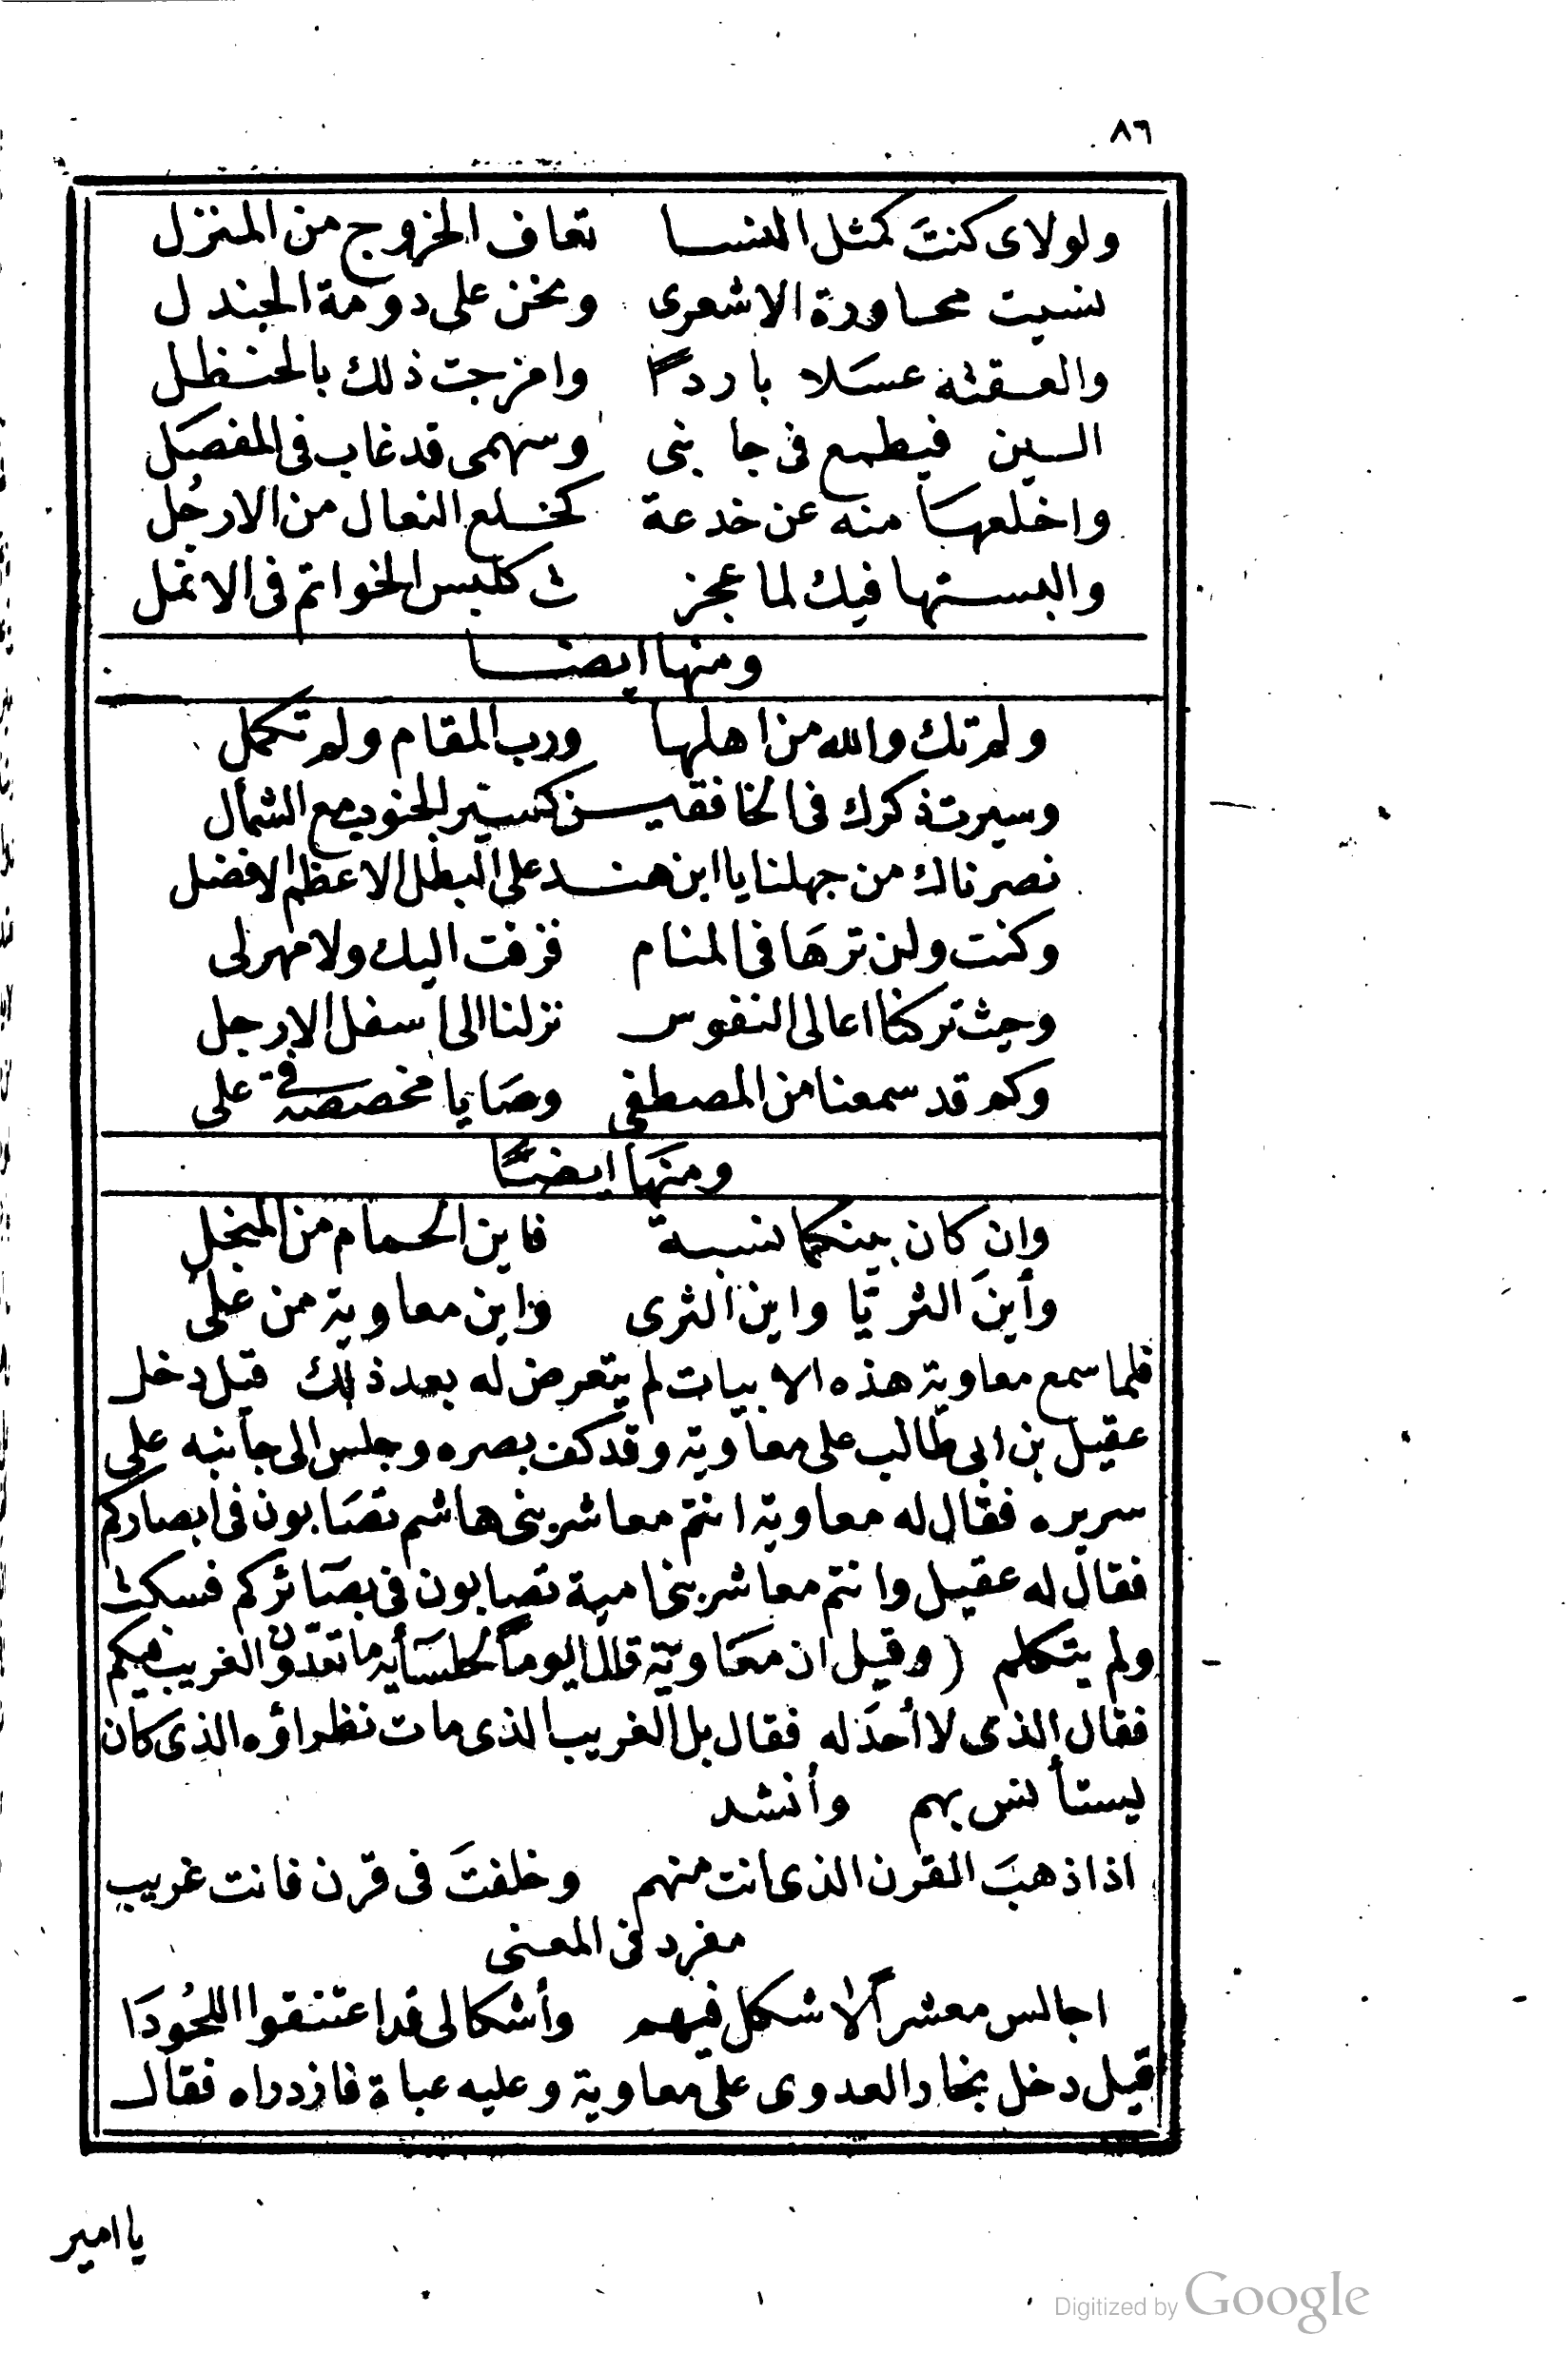 ٨٦
ولولاى كنتَ كمثل النسا تعاف الخروج من المنزل
نسيت محاورة الاشعرى ونحن على دومة الجندل
والعقته عسَلا باردًا وامزجت ذلك بالحنظل
السين فيطمع فى جانبى وسهمى قد غاب فى المفصَل
واخلعهَا منه عن خدعة كخلع النعال من الارجُل
والبستها فيك لما عجز ت كلبس الخواتم فى الانمل
ومنها ايضا
ولم تك والله من اهلها ورب المقام ولم تكمل
وسيرت ذكرك فى الخافقين كسير الجنوب مع الشمأل
نصرناك من جهلنا يا ابن هند على البطل الاعظم الافضل
وكنت ولن ترهَا فى المنام فزفت اليك ولا مهر لى
وحيث تركنا اعالى النفوس نزلنا الى اسفل الارجل
وكم قد سمعنا من المصطفى وصَايا مخصصة فى على
ومنهَا ايضًا
وان كان بينكما نسبة فاين الحسام من المنجل
وأينَ الثريّا واين الثرى واين معاوية من على
فلما سمع معاوية هذه الابيات لم يتعرض له بعد ذلك قيل دخل
عقيل بن ابى طالب على معاوية وقد كف بصره وجلس الى جانبه على
سريره فقال له معاوية انتم معاشر بنى هاشم تصَابون فى ابصاركم
فقال له عقيل وانتم معاشر بنى امية تصابون فى بصَائركم فسكت
ولم يتكلم (وقيل ان معَاويَة قال يوماً لجلسَائه ما تعدّون الغريب فيكم
فقال الذى لا أحدَ له فقال بل الغريب الذى مات نظراؤه الذى كان
يستأنس بهم وأنشد
اذا ذهبَ القرن الذى انت منهم وخلفتَ فى قرن فانت غريب
مفرد فى المعنى
اجالس معشراً لا شكل فيهم وأشكالى قد اعتنقوا اللحُودَا
قيل دخل نخار العدوى على معاوية وعليه عباة فازدراه فقال
يا امير
Digitized by Google